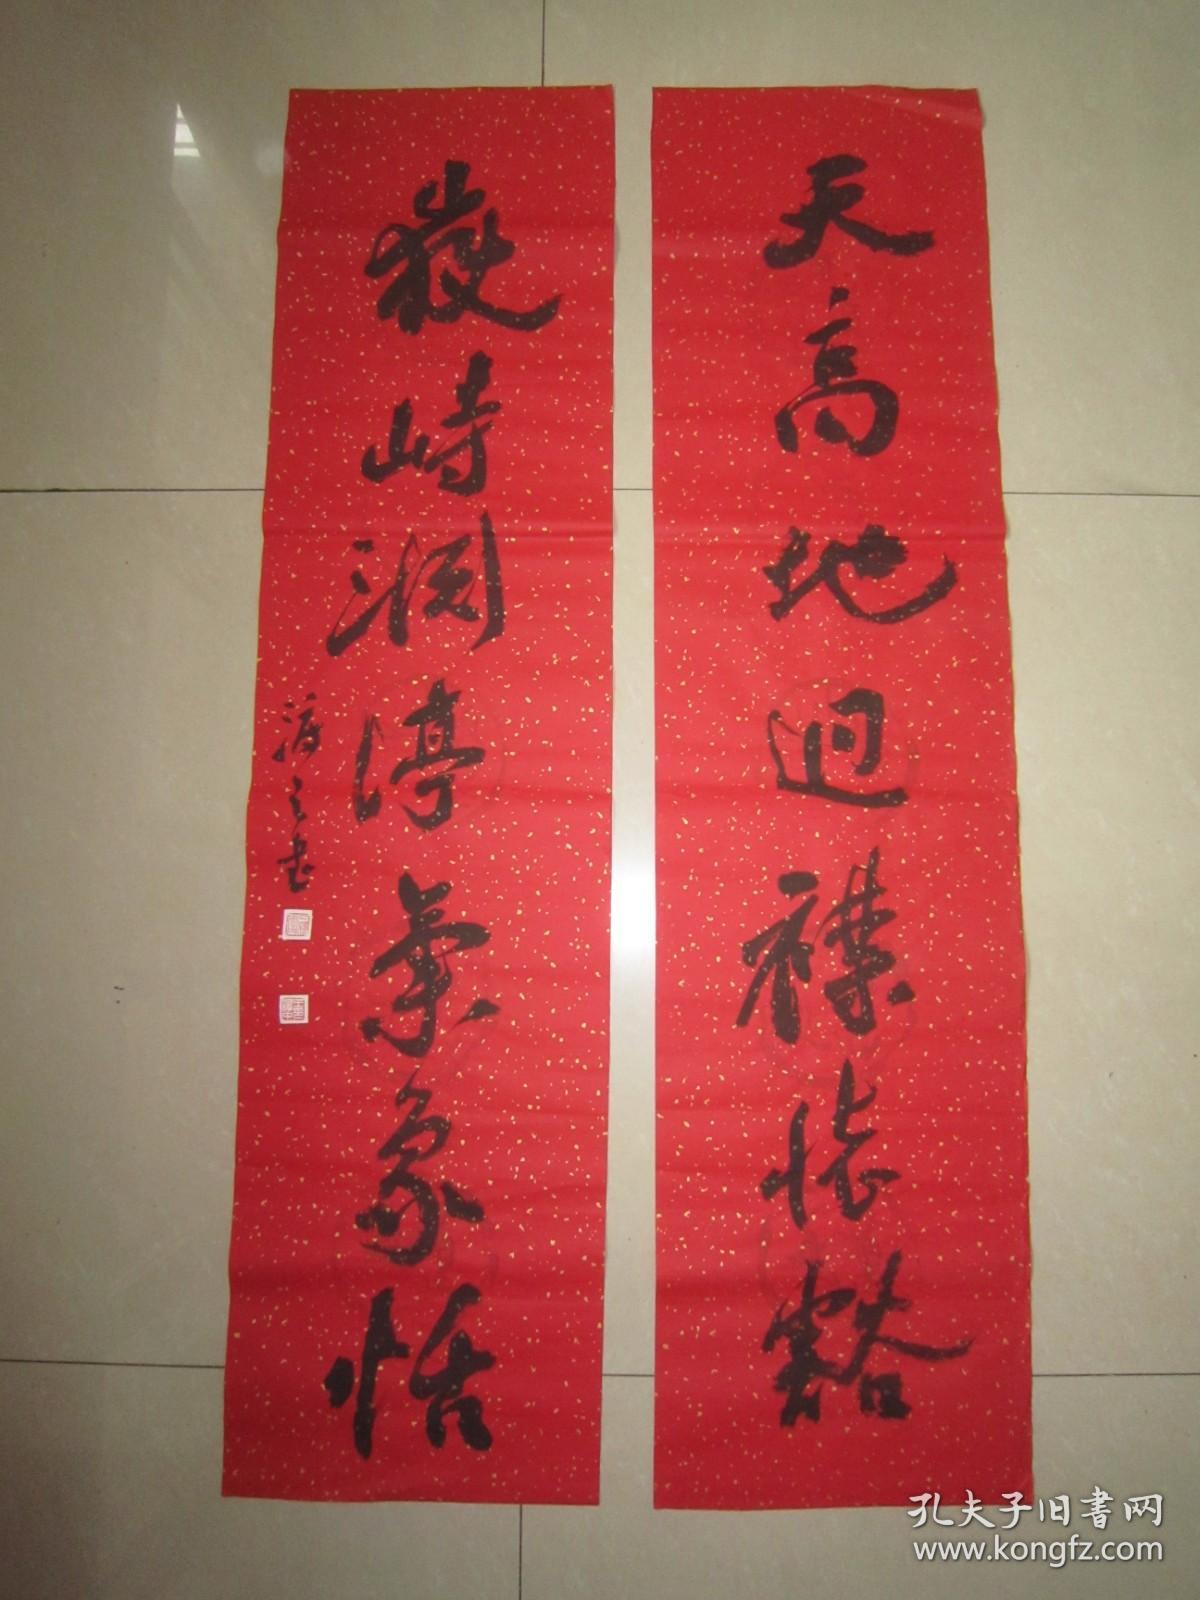 天高地迥襟懷豁
嶽峙淵渟氣象恬
孔夫子旧书网
www.kongfz.com